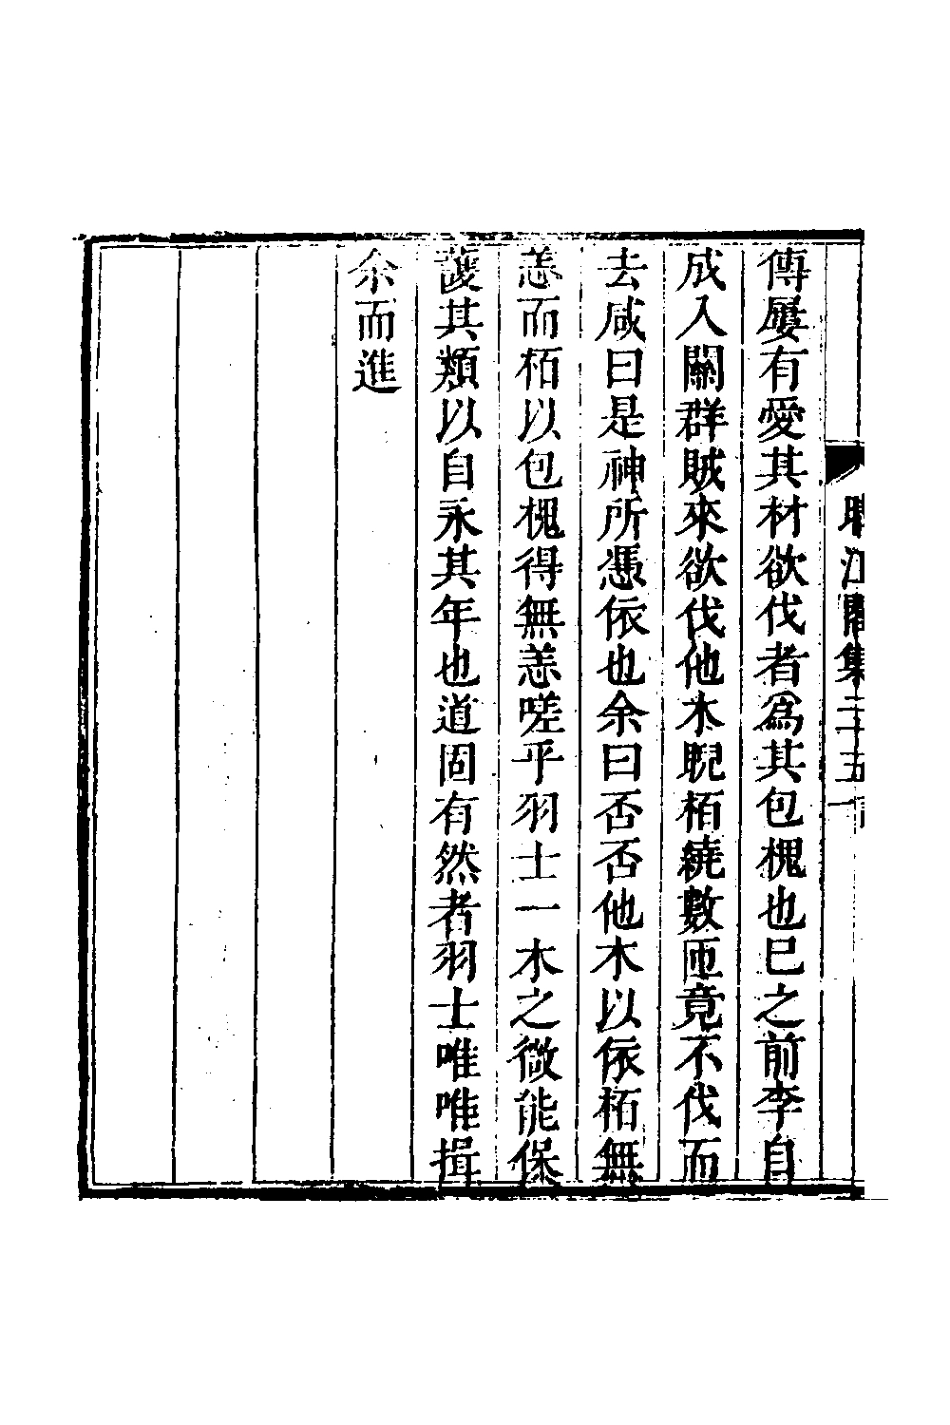 傳屢有愛其材欲伐者為其包槐也巳之前李自
成入關群賊來欲伐他木睨栢繞數匝竟不伐而
去咸曰是神所憑依也余曰否否他木以依栢無
恙而栢以包槐得無恙嗟乎羽士一木之微能保
護其類以自永其年也道固有然者羽士唯唯揖
余而進